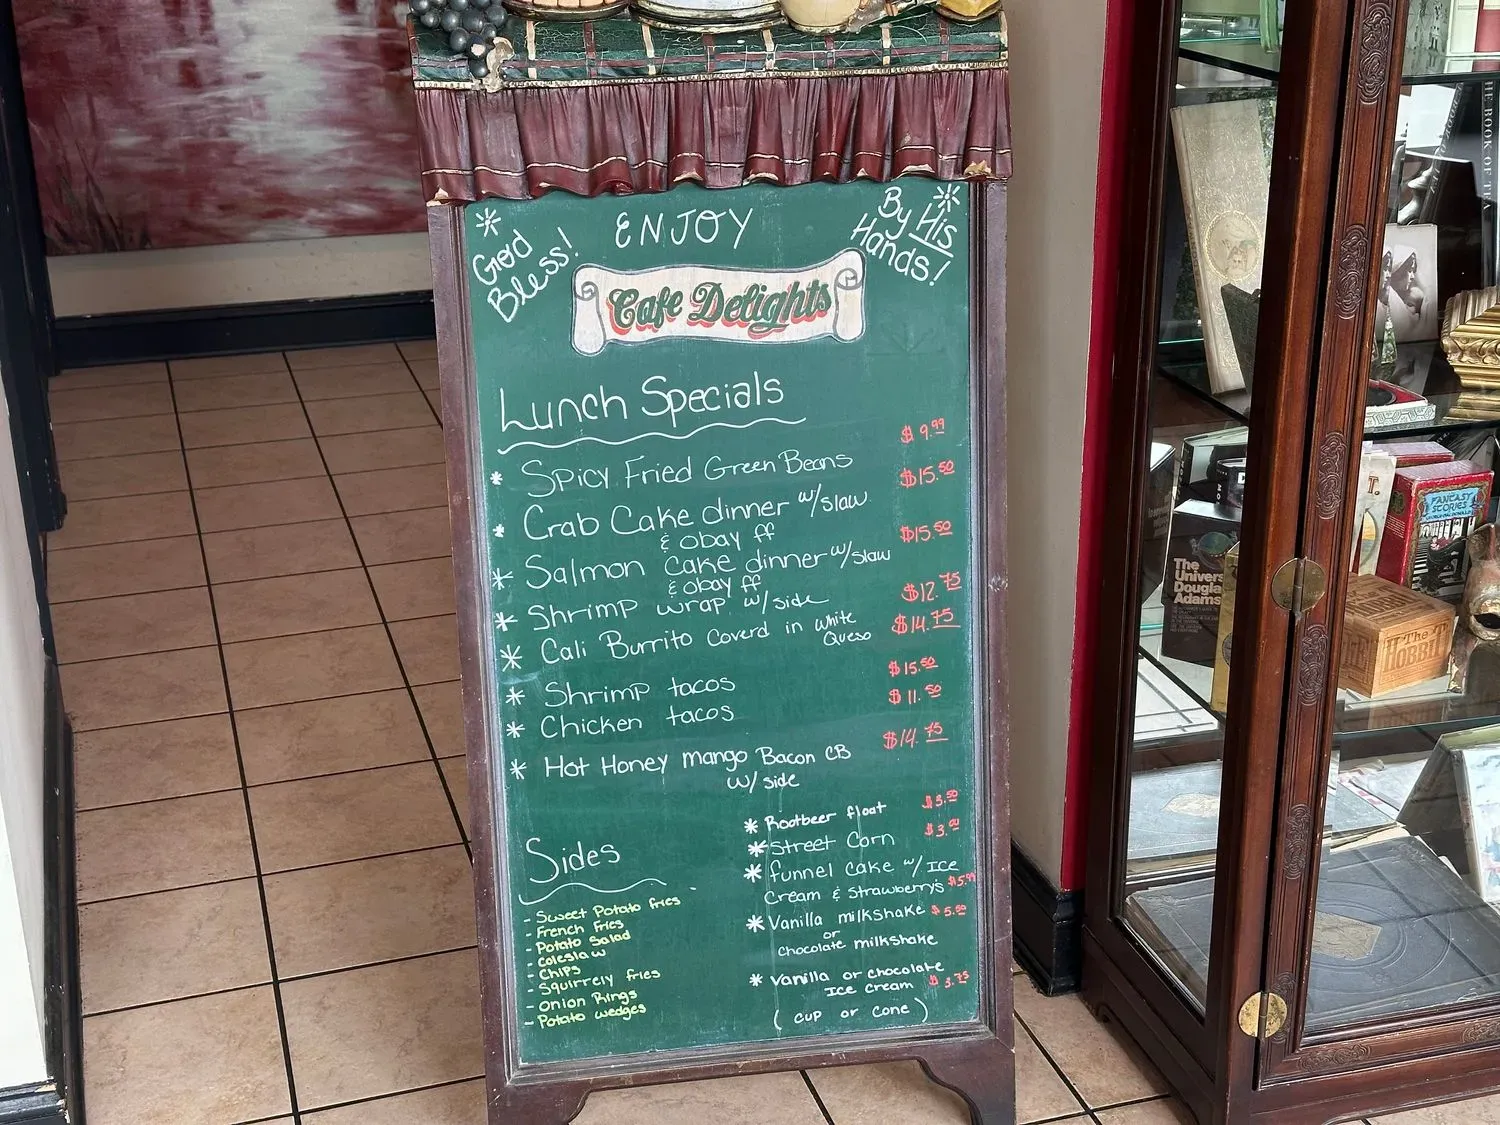 God
Bless!
ENJOY
By His
Hands!
Cafe Delights
Lunch Specials
* Spicy Fried Green Beans $9.99
* Crab Cake dinner w/slaw $15.50
& obay ff
* Salmon cake dinner w/slaw $15.50
& obay ff
* Shrimp wrap w/side $12.75
* Cali Burrito Coverd in white $14.75
Queso
* Shrimp tacos $15.50
* Chicken tacos $11.50
* Hot Honey mango Bacon CB $14.75
w/side
Sides
- Sweet Potato fries
- French Fries
- Potato Salad
- coleslaw
- Chips
- Squirrely fries
- Onion Rings
- Potato wedges
* Rootbeer float
* Street Corn
* funnel cake w/ Ice
Cream & Strawberry's $5.99
* Vanilla milkshake $5.50
or
chocolate milkshake
* Vanilla or chocolate
Ice cream $3.75
( cup or cone )
HE BOOK OF TEA
FANTASY
STORIES
The
Univers
Dougla
Adams
The
HOBBIT